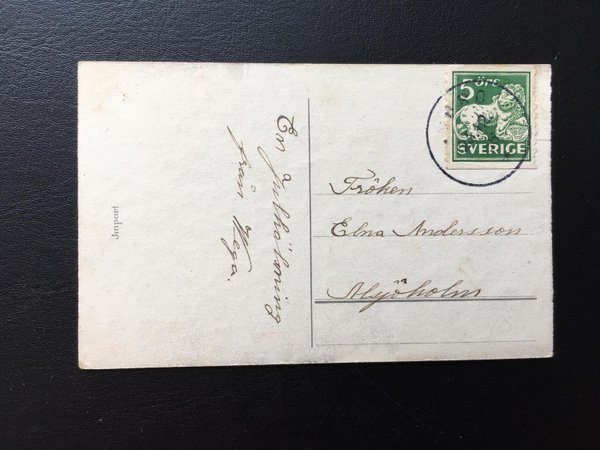 5 ÖRE
SVERIGE
En Julhälsning
från Hega.
Fröken
Elna Andersson
Alsjöholm
Import